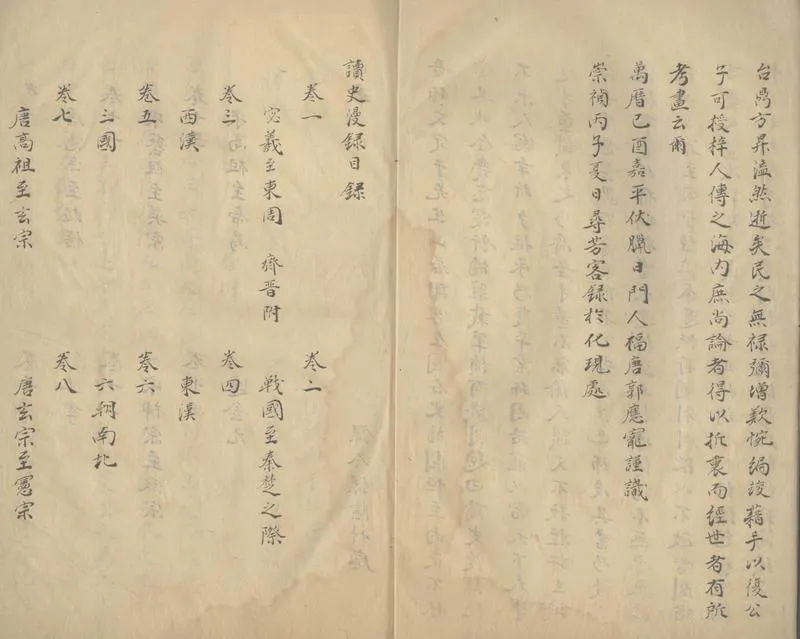 台鼎方昇溘然逝矣民之無祿彌增歎惋編竣藉手以復公
子可授梓人傳之海內庶尚論者得以折衷而經世者有所
考畫云爾
萬曆己酉嘉平伏臘日門人福唐郭應寵謹識
崇禎丙子夏日尋芳客録於化現處
讀史漫録目録
卷一 卷二
宓羲至東周 齊晉附 戰國至秦楚之際
卷三 卷四
西漢 東漢
卷五 卷六
三國 六朝南北
卷七 卷八
唐高祖至玄宗 唐玄宗至憲宗